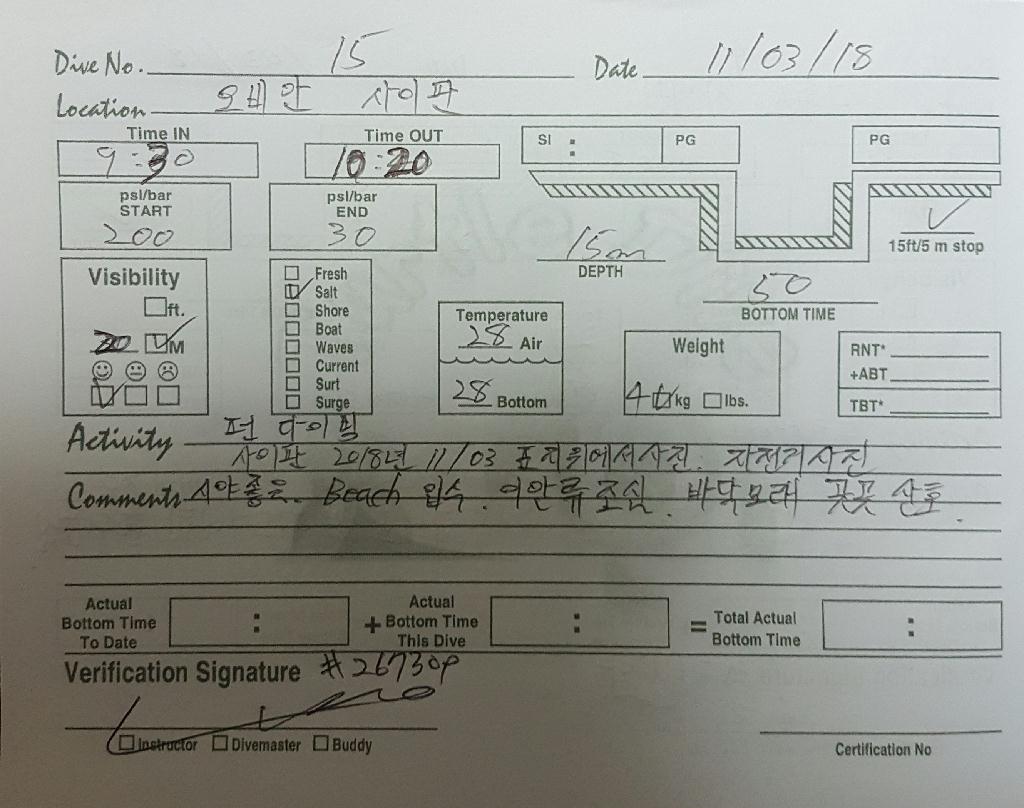 Dive No. 15 Date 11/03/18
Location 오비안 사이판
Time IN Time OUT SI : PG PG
9:30 10:20
psl/bar START psl/bar END
200 30
15m DEPTH 15ft/5 m stop
50 BOTTOM TIME
Visibility
ft.
20 M
Fresh
Salt
Shore
Boat
Waves
Current
Surt
Surge
Temperature
28 Air
28 Bottom
Weight
4 kg lbs.
RNT*
+ABT
TBT*
Activity 펀 다이빙
사이판 2018년 11/03 표지위에서사진. 자전거사진
Comments 시야좋음. Beach 입수. 이안류조심. 바닥모래 곳곳 산호.
Actual Bottom Time To Date : + Actual Bottom Time This Dive : = Total Actual Bottom Time :
Verification Signature #26730P
Instructor Divemaster Buddy Certification No